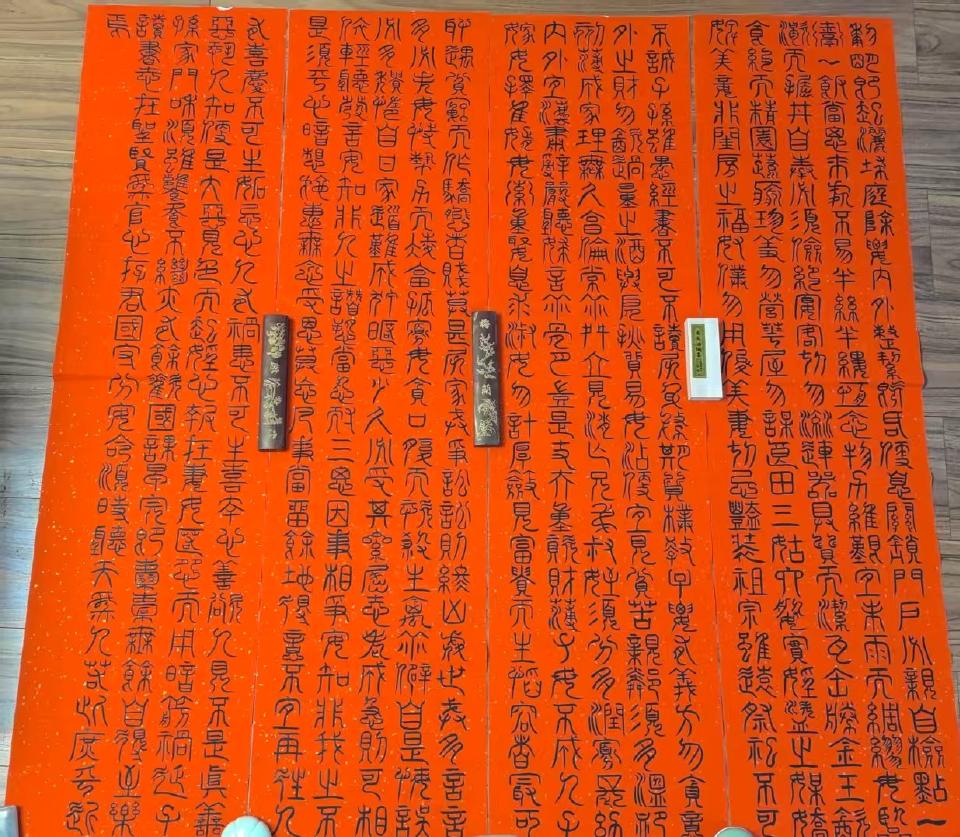 黎明即起灑掃庭除要內外整潔既昏便息關鎖門戶必親自檢點一
粥一飯當思來處不易半絲半縷恆念物力維艱宜未雨而綢繆毋臨
渴而掘井自奉必須儉約宴客切勿流連器具質而潔瓦缶勝金玉飲
食約而精園蔬愈珍饈勿營華屋勿謀良田三姑六婆實婬盜之媒嬌
婢美妾非閨房之福奴僕勿用俊美妻妾切忌豔裝祖宗雖遠祭祀不可
不誠子孫雖愚經書不可不讀居身務期質樸教子要有義方勿貪意
外之財勿飲過量之酒與肩挑貿易毋佔便宜見貧苦親鄰須多溫恤
刻薄成家理無久享倫常乖舛立見消亡兄弟叔姪須分多潤寡長幼
內外宜法肅辭嚴聽婦言乖骨肉豈是丈夫重貲財薄父母不成人子
嫁女擇佳婿毋索重聘娶媳求淑女勿計厚奩見富貴而生諂容者最可
恥遇貧窮而作驕態者賤莫甚居家戒爭訟訟則終凶處世戒多言言
多必失毋恃勢力而凌逼孤寡毋貪口腹而恣殺生禽乖僻自是悔誤
必多頹惰自甘家道難成狎暱惡少久必受其累屈志老成急則可相
依輕聽發言安知非人之譖訴當忍耐三思因事相爭安知非我之不
是須平心暗想施惠無念受恩莫忘凡事當留餘地得意不宜再往人
有喜慶不可生妒忌心人有禍患不可生喜幸心善欲人見不是真善
惡恐人知便是大惡見色而起婬心報在妻女匿怨而用暗箭禍延子
孫家門和順雖饔飧不繼亦有餘歡國課早完即囊橐無餘自得至樂
讀書志在聖賢為官心存君國守分安命順時聽天為人若此庶乎近
焉